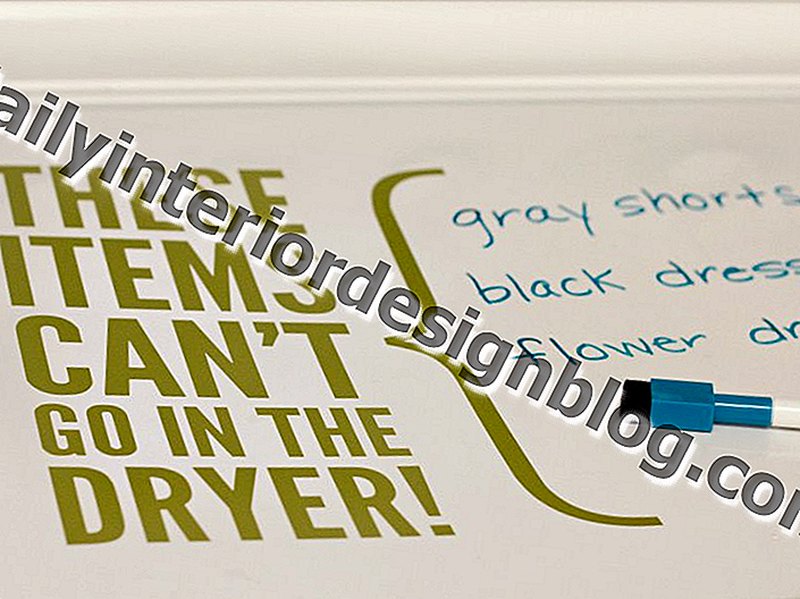 THESE
ITEMS
CAN'T
GO IN THE
DRYER!
gray shorts
black dress
flower dr
dailyinteriordesignblog.com